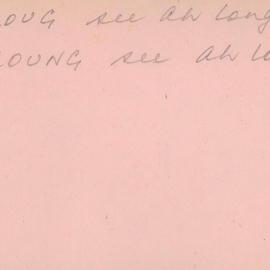 LOUG see Ah Long
LOUNG see Ah Lo